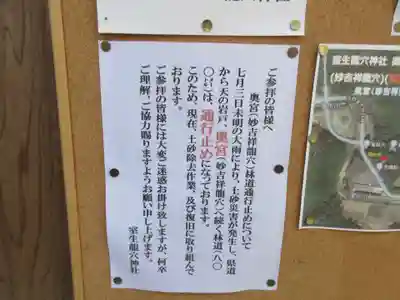 ご参拝の皆様へ
奥宮(妙吉祥龍穴)林道通行止めについて
七月三日未明の大雨により、土砂災害が発生し、県道
から天の岩戸、奥宮(妙吉祥龍穴)へ続く林道(八〇
〇㍍)は、通行止めになっております。
このため、現在、土砂除去作業、及び復旧に取り組んで
おります。
ご参拝の皆様には大変ご迷惑お掛け致しますが、何卒
ご理解、ご協力賜りますようお願い申し上げます。
室生龍穴神社
室生龍穴神社
(妙吉祥龍穴)
奥宮(妙吉祥